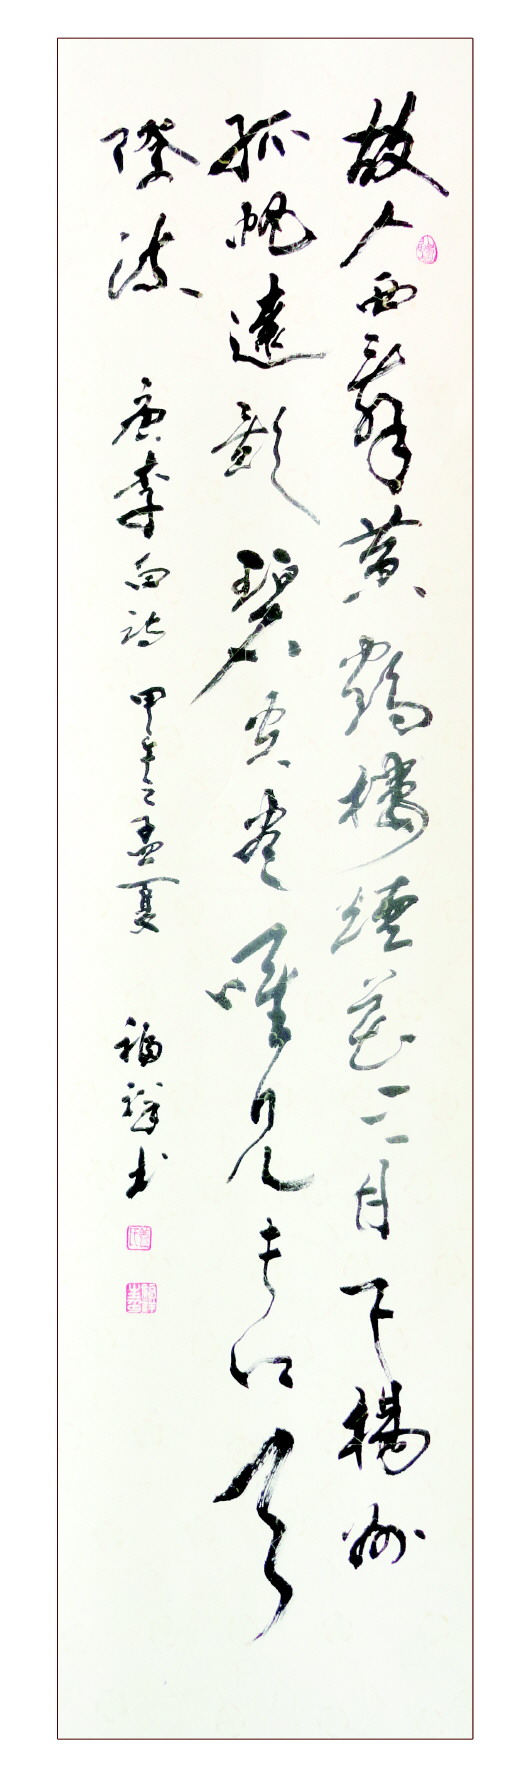 故人西辭黃鶴樓煙花三月下揚州
孤帆遠影碧空盡唯見長江天
際流 唐李白詩 甲午之孟夏 福祥书